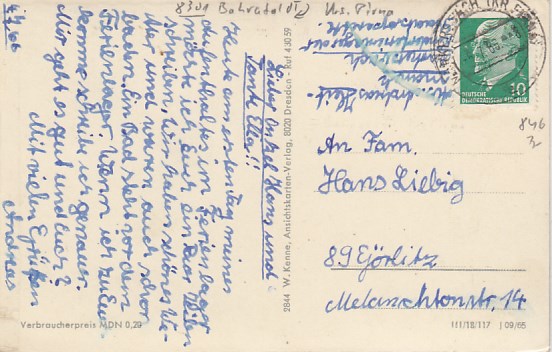 8301 Bahratal
Krs. Pirna
DEUTSCHE
DEMOKRATISCHE REPUBLIK
10
846
An Fam.
Hans Liebig
89 Görlitz
Melanchtonstr. 14
III/18/117 J 09/65
2844 W. Kenne, Ansichtskarten-Verlag, 8020 Dresden - Ruf 43059
Verbraucherpreis MDN 0,29
Lieber Onkel Hans und
Tante Ella!!
Heute am ersten Tag meines
Aufenthaltes im Ferienlager
möchte ich Euch ein paar Zeilen
schreiben. Wir haben schönes We-
tter und waren auch schon
baden. Ein Bad steht vor dem
Ferienlager. Wenn ich zu Euch
komme schreibe ich genauer.
Mir geht es gut und Euch?
Mit vielen Grüßen
Andreas